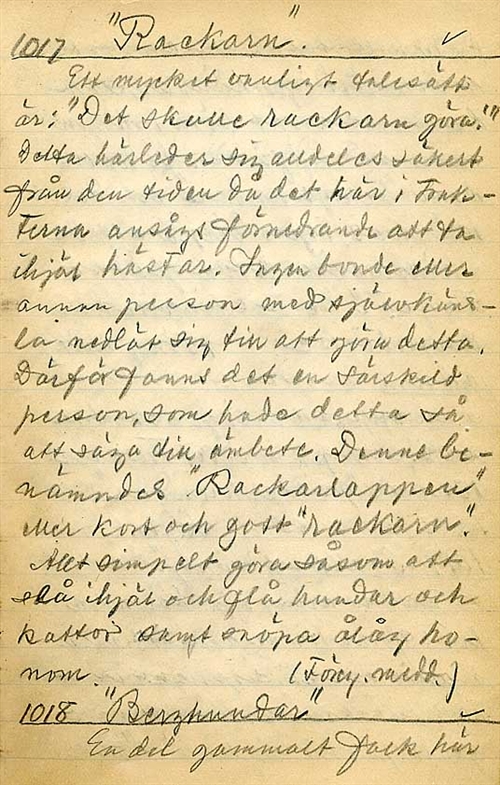 1017 "Rackarn".
Ett mycket vanligt talesätt
är: "Det skulle rackarn göra."
Detta härleder sig alldeles säkert
från den tiden då det här i trak-
terna ansågs förnedrande att ta
ihjäl hästar. Ingen bonde eller
annan person med självkäns-
la nedlät sig till att göra detta.
Därför fanns det en särskild
person, som hade detta så
att säga till ämbete. Denne be-
nämndes "Rackarlappen"
eller kort och gott "rackarn".
Allt simpelt göra såsom att
slå ihjäl och flå hundar och
kattor samt snöpa ålåg ho-
nom. (Föreg. medd.)
1018 "Berghundar"
En del gammalt folk här